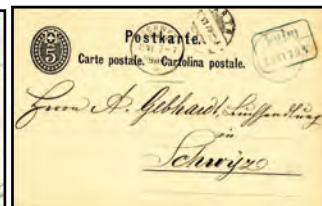 5
Postkarte.
Carte postale. Cartolina postale.
Herrn A. Gebhardt, Buchhandlung
in
Schwyz